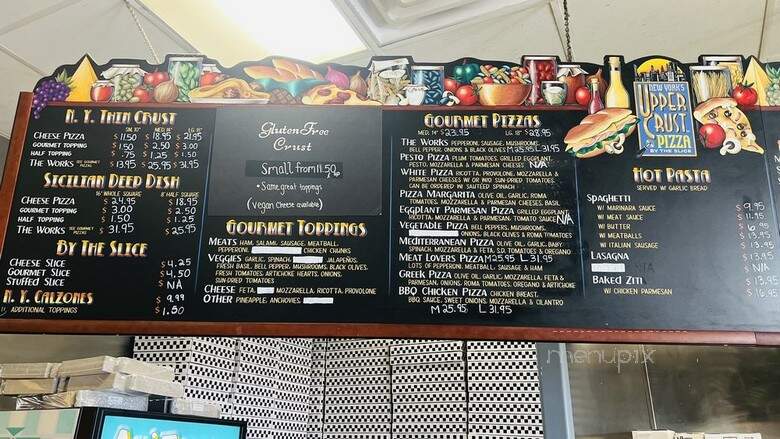 N.Y. THIN CRUST
SM. 10" MED. 14" LG. 18"
CHEESE PIZZA $11.50 $18.95 $21.95
GOURMET TOPPING $1.50 $2.50 $3.00
HALF TOPPING $.75 $1.25 $1.50
THE WORKS SEE GOURMET PIZZAS $25.95 $31.95
SICILIAN DEEP DISH
WHOLE SQUARE HALF SQUARE
CHEESE PIZZA $24.95 $18.95
GOURMET TOPPING $3.00 $2.50
HALF TOPPING $1.50 $1.25
THE WORKS SEE GOURMET PIZZAS $31.95 $25.95
BY THE SLICE
CHEESE SLICE $4.25
GOURMET SLICE $4.50
STUFFED SLICE $N/A
N.Y. CALZONES $9.99
ADDITIONAL TOPPINGS $1.50
Gluten Free
Crust
Small from 11.50
• Same great toppings
(vegan cheese available)
GOURMET TOPPINGS
MEATS HAM, SALAMI, SAUSAGE, MEATBALL,
PEPPERONI, CHICKEN CHUNKS
VEGGIES GARLIC, SPINACH, JALAPEÑOS,
FRESH BASIL, BELL PEPPER, MUSHROOMS, BLACK OLIVES,
FRESH TOMATOES, ARTICHOKE HEARTS, ONIONS,
SUN-DRIED TOMATOES
CHEESE FETA, MOZZARELLA, RICOTTA, PROVOLONE
OTHER PINEAPPLE, ANCHOVIES,
GOURMET PIZZAS
MED. 14" $23.95 LG. 18" $28.95
THE WORKS PEPPERONI, SAUSAGE, MUSHROOMS,
BELL PEPPER, ONIONS & BLACK OLIVES M25.95 L31.95
PESTO PIZZA PLUM TOMATOES, GRILLED EGGPLANT,
PESTO, MOZZARELLA & PARMESAN CHEESES N/A
WHITE PIZZA RICOTTA, PROVOLONE, MOZZARELLA &
PARMESAN CHEESES W/ OR W/O SUN-DRIED TOMATOES,
CAN BE ORDERED W/ SAUTÉED SPINACH
PIZZA MARGARITA OLIVE OIL, GARLIC, ROMA
TOMATOES, MOZZARELLA & PARMESAN CHEESES, BASIL
EGGPLANT PARMESAN PIZZA GRILLED EGGPLANT,
RICOTTA, MOZZARELLA & PARMESAN, TOMATO SAUCE N/A
VEGETABLE PIZZA BELL PEPPERS, MUSHROOMS,
ONIONS, BLACK OLIVES & ROMA TOMATOES
MEDITERRANEAN PIZZA OLIVE OIL, GARLIC, BABY
SPINACH, MOZZARELLA & FETA, S.D. TOMATOES & OREGANO
MEAT LOVERS PIZZA M25.95 L31.95
LOTS OF PEPPERONI, MEATBALL, SAUSAGE & HAM
GREEK PIZZA OLIVE OIL, GARLIC, MOZZARELLA, FETA &
PARMESAN, ONIONS, ROMA TOMATOES, OREGANO & ARTICHOKE
BBQ CHICKEN PIZZA CHICKEN BREAST,
BBQ SAUCE, SWEET ONIONS, MOZZARELLA & CILANTRO
M25.95 L31.95
NEW YORK'S
UPPER
CRUST
PIZZA
BY THE SLICE
HOT PASTA
SERVED W/ GARLIC BREAD
SPAGHETTI
W/ MARINARA SAUCE $9.95
W/ MEAT SAUCE $11.95
W/ BUTTER
W/ MEATBALLS $13.95
W/ ITALIAN SAUSAGE $13.95
LASAGNA $13.95
N/A
BAKED ZITI $13.95
W/ CHICKEN PARMESAN $16.95
menupix